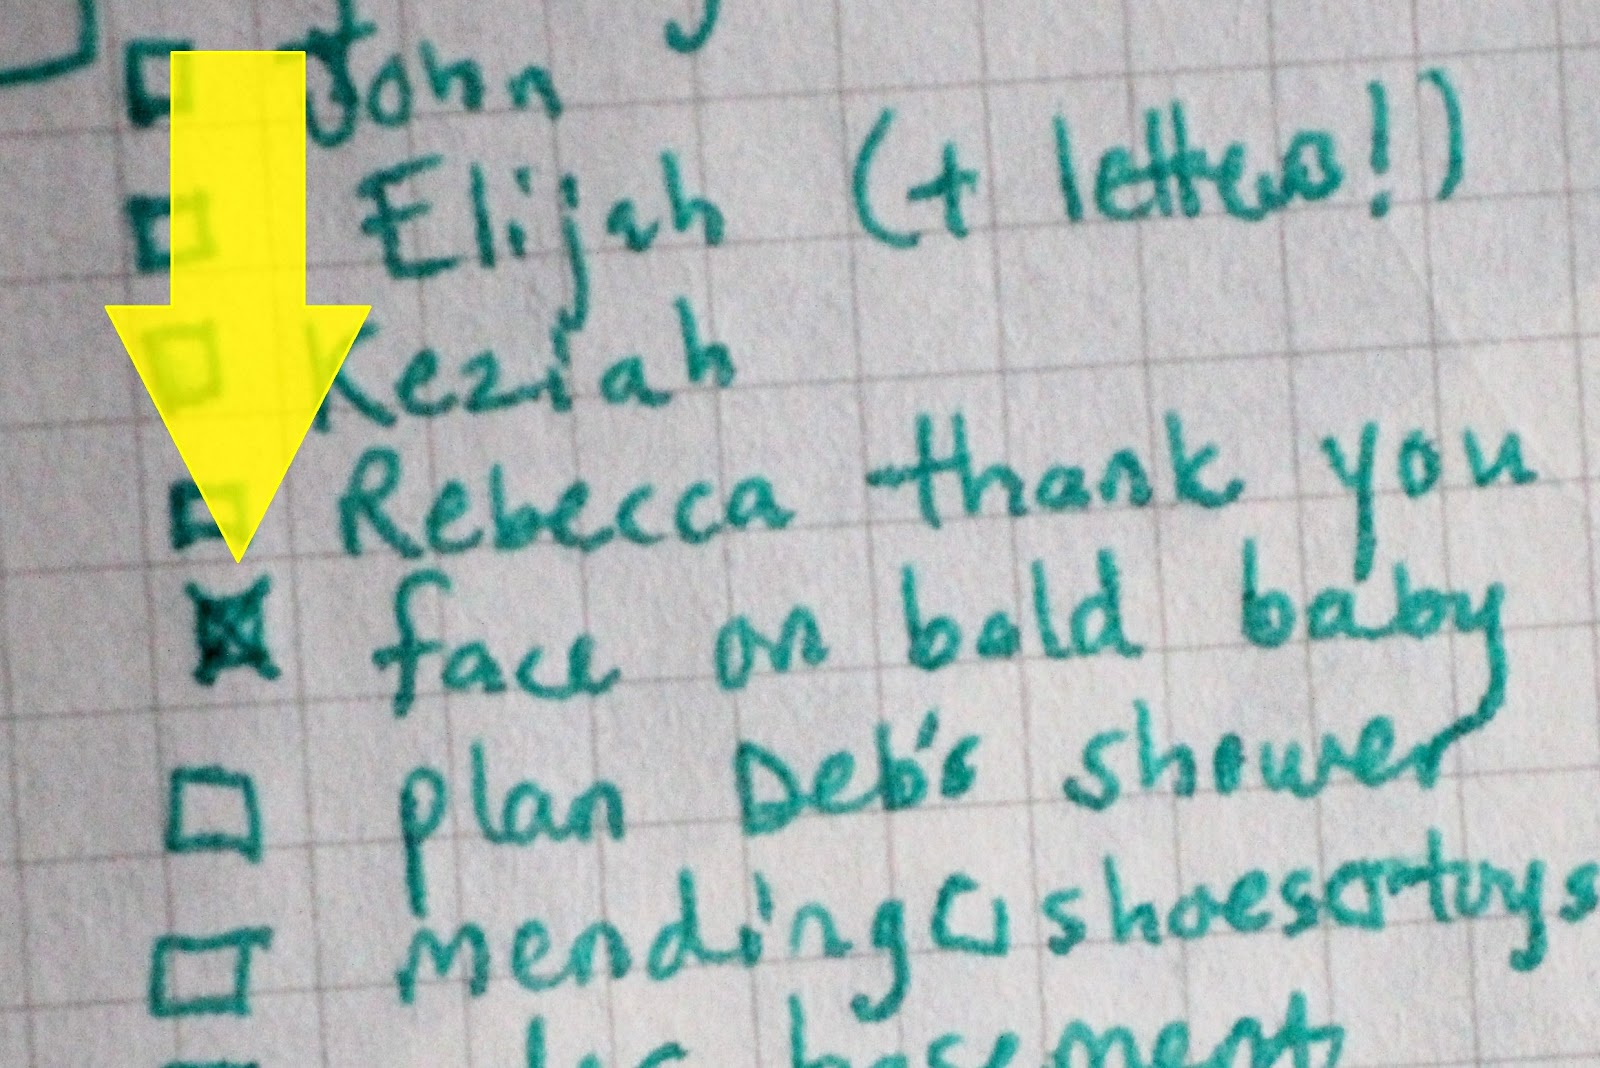 John
Elijah (+ letters!)
Keziah
Rebecca thank you
face on bald baby
plan Deb's shower
mending shoes toys
basement